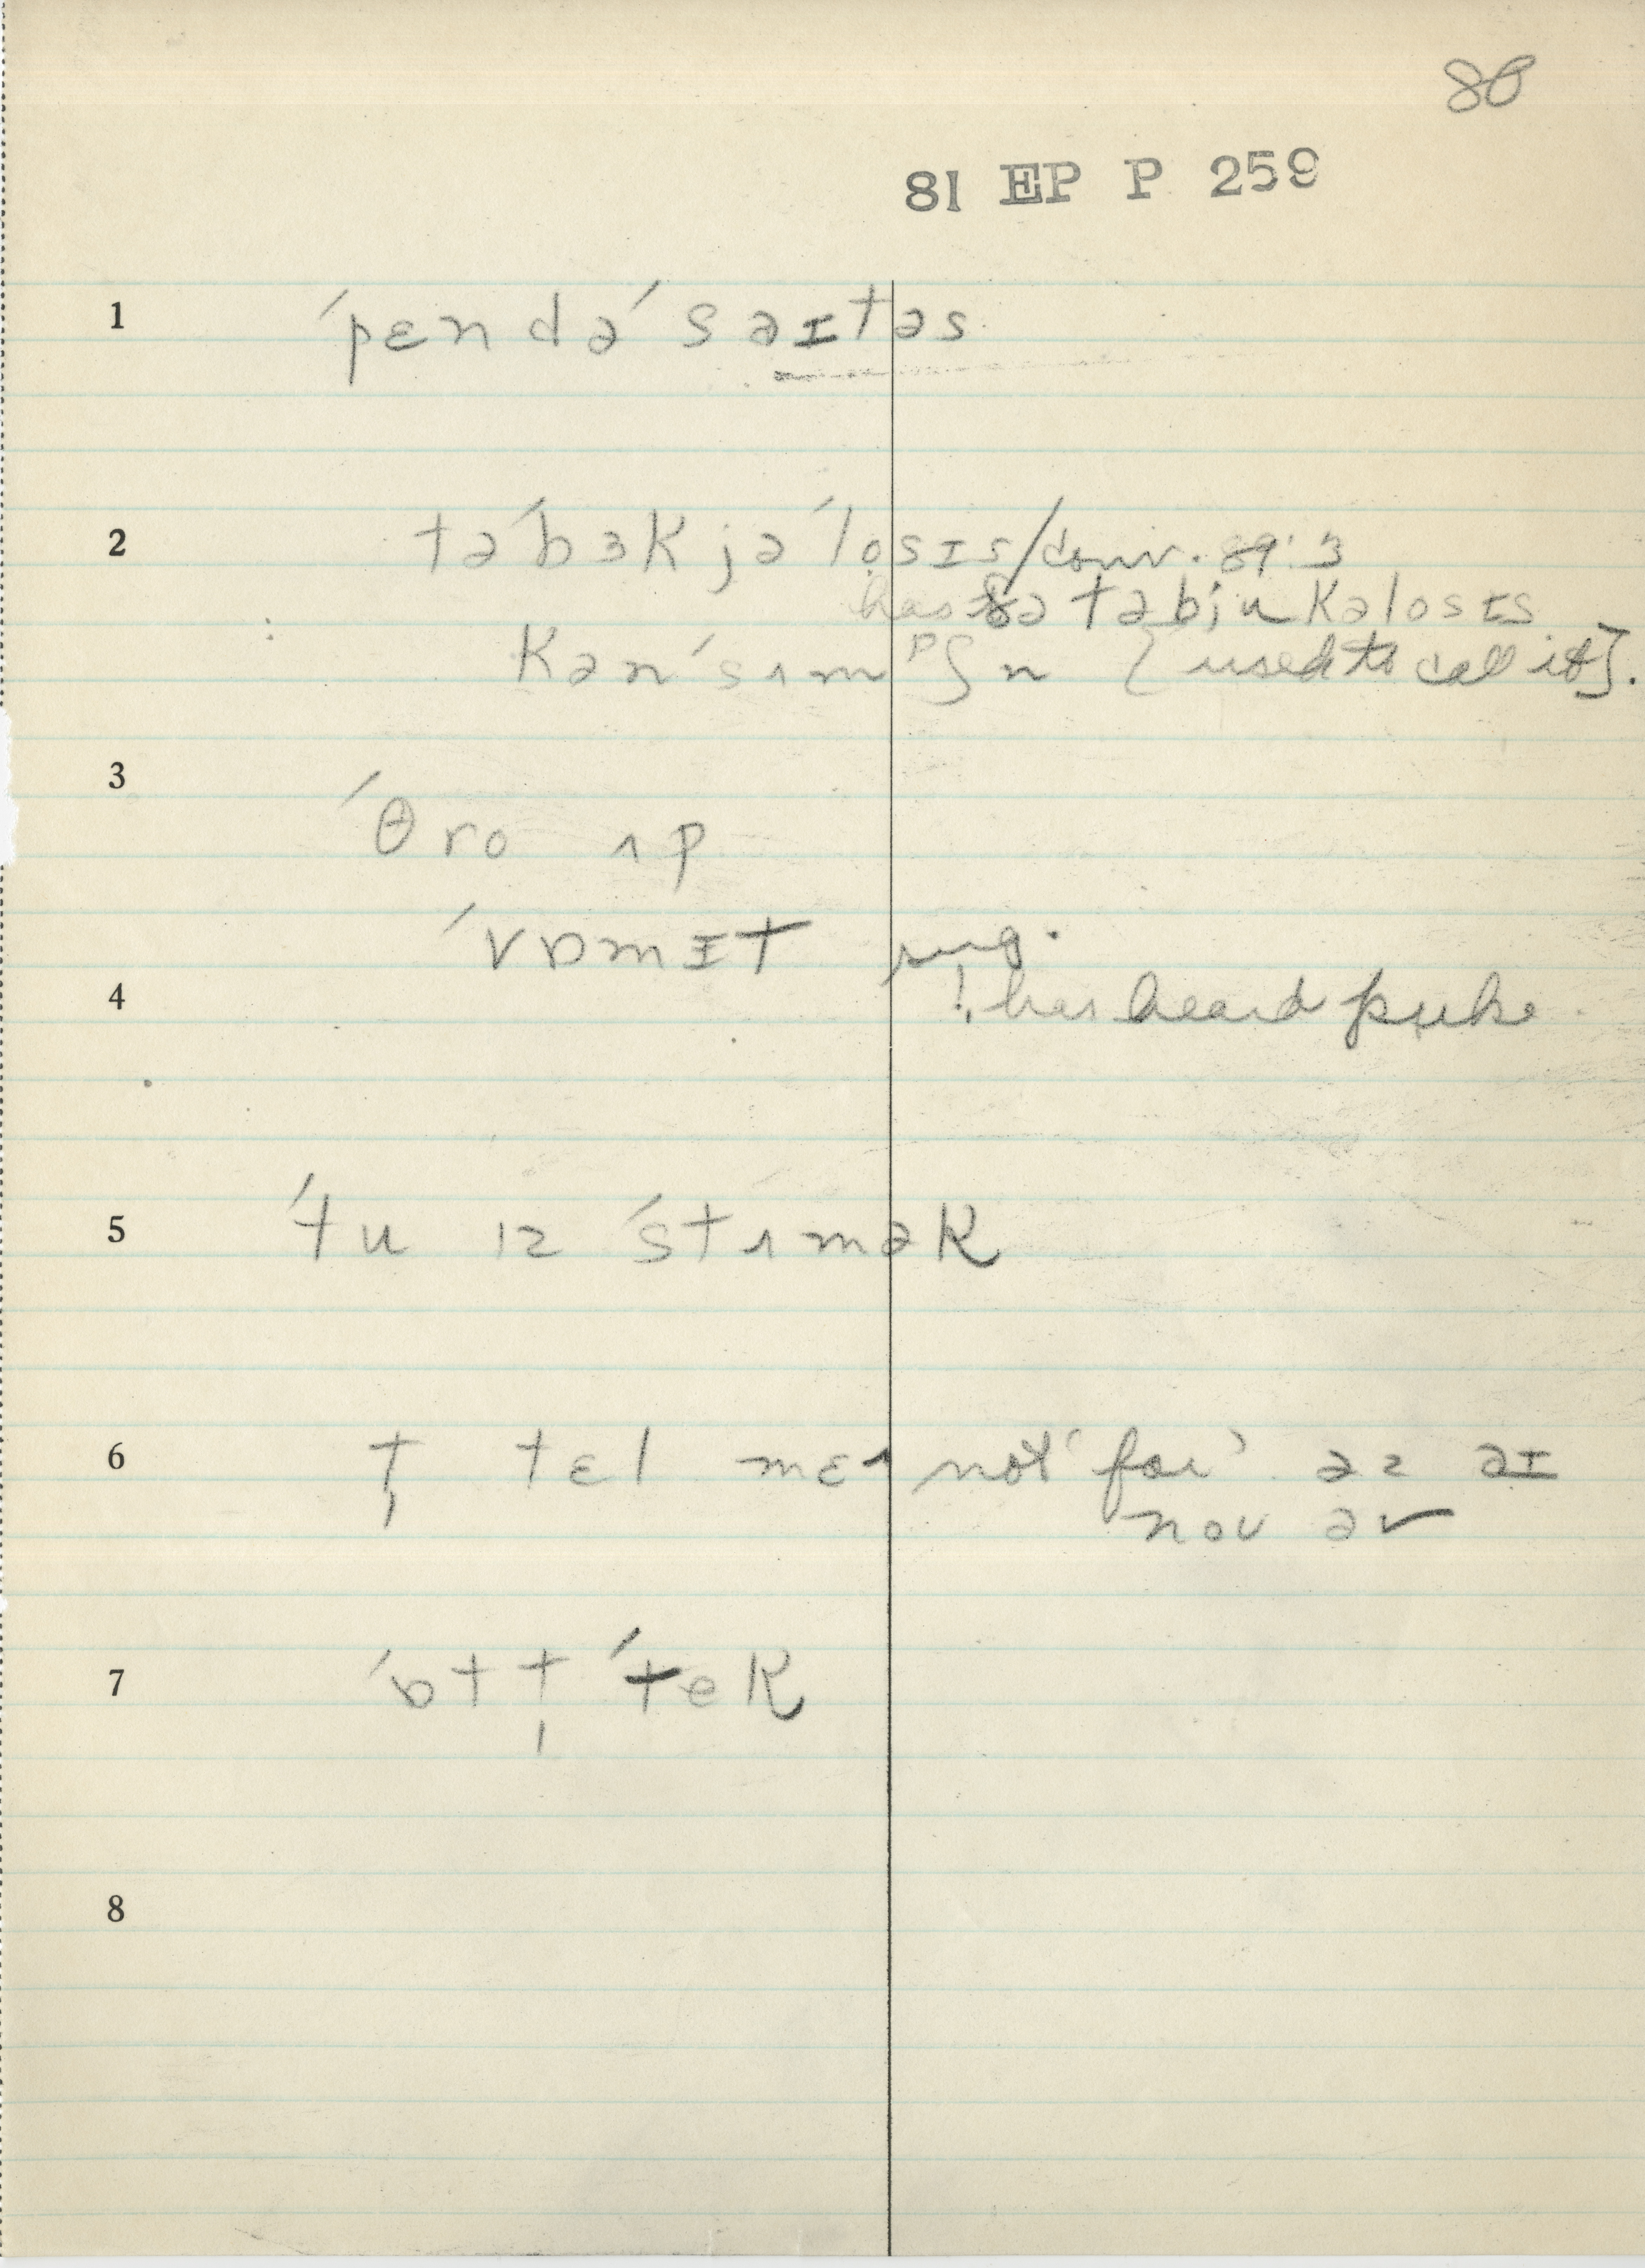 80
81 EP P 259
1 ˊpɛndəˊsəɪtəs
2 təˊbɜkjəˊlosɪs/conv. 89:3
has ðə təbjukəlosɪs
kənˊsʌmᵖʃn [used to call it].
3 ˊθro ʌp
ˊvɒmɪt sug.
4 ! has heard puke
5 ˊtu ɪz ˊstʌmək
6 t̩ tɛl mɛ not 'for' əz əɪ
nov əv
7 ˊɒt t̩ ˊtek
8